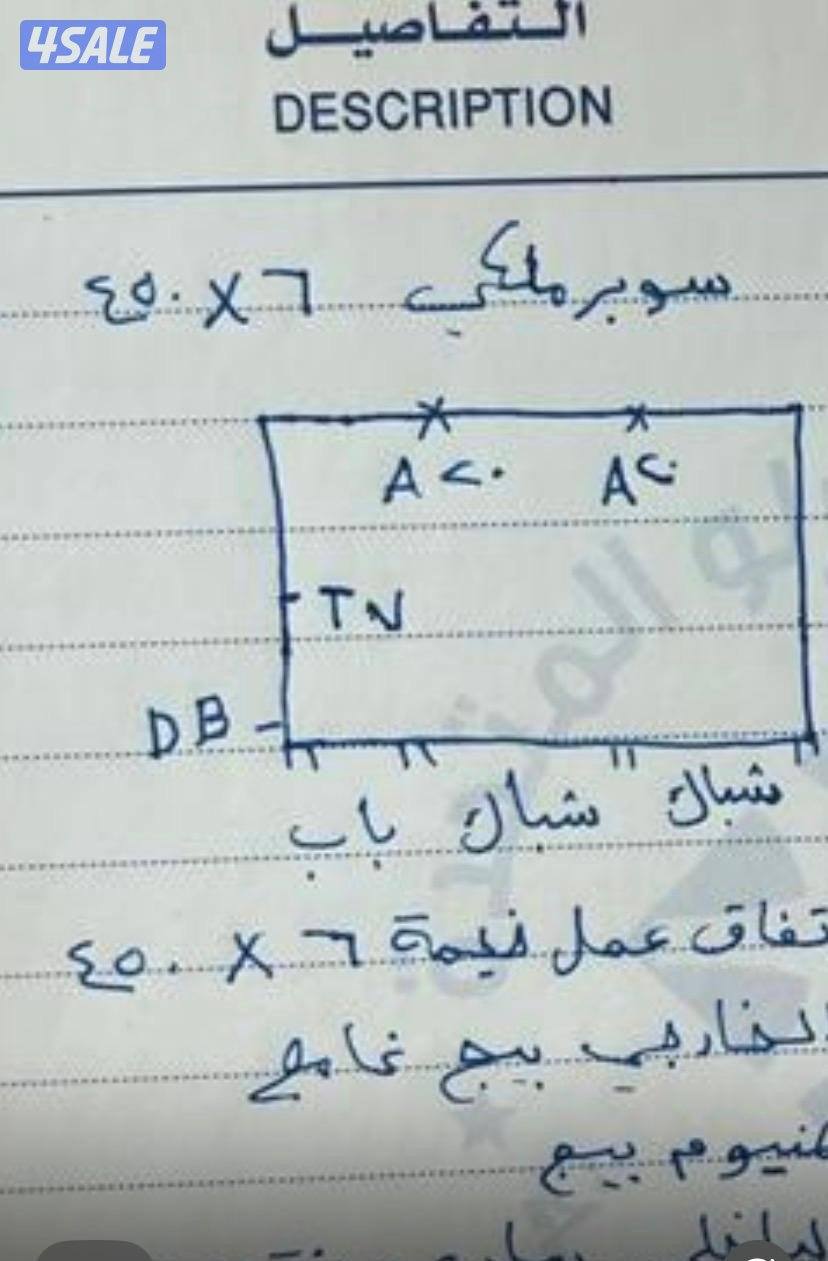 4SALE
التفاصيل
DESCRIPTION
سوبر ملكي ٦ X ٤٥٠
AC AC
TV
DB
شباك شباك باب
تفاق عمل خيمة ٦ X ٤٥٠
لخارجي بيج غامق
منيوم بيج